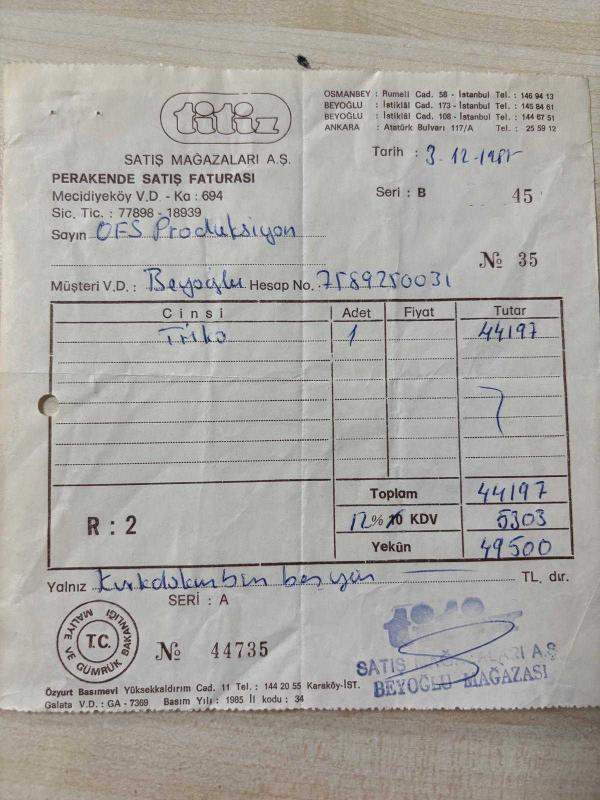 titiz
SATIŞ MAĞAZALARI A.Ş.
PERAKENDE SATIŞ FATURASI
Mecidiyeköy V.D. - Ka : 694
Sic. Tic. : 77898 - 18939
OSMANBEY : Rumeli Cad. 58 - İstanbul Tel. : 146 94 13
BEYOĞLU : İstiklâl Cad. 173 - İstanbul Tel. : 145 84 61
BEYOĞLU : İstiklâl Cad. 108 - İstanbul Tel. : 144 67 51
ANKARA : Atatürk Bulvarı 117/A Tel. : 25 59 12
Tarih : 3-12-198
Seri : B 45
Sayın OFS Prodüksiyon
№ 35
Müşteri V.D. : Beyoğlu Hesap No. : 7589250031
Cinsi Adet Fiyat Tutar
Triko 1 44197
Toplam 44197
R : 2
12% 10 KDV 5303
Yekûn 49500
Yalnız Kırkdokuzbin beşyüz TL. dır.
SERİ : A
T.C. MALİYE VE GÜMRÜK BAKANLIĞI
№ 44735
SATIŞ MAĞAZALARI A.Ş.
BEYOĞLU MAĞAZASI
Özyurt Basımevi Yüksekkaldırım Cad. 11 Tel. : 144 20 55 Karaköy-İST.
Galata V.D. : GA - 7369 Basım Yılı : 1985 İl kodu : 34